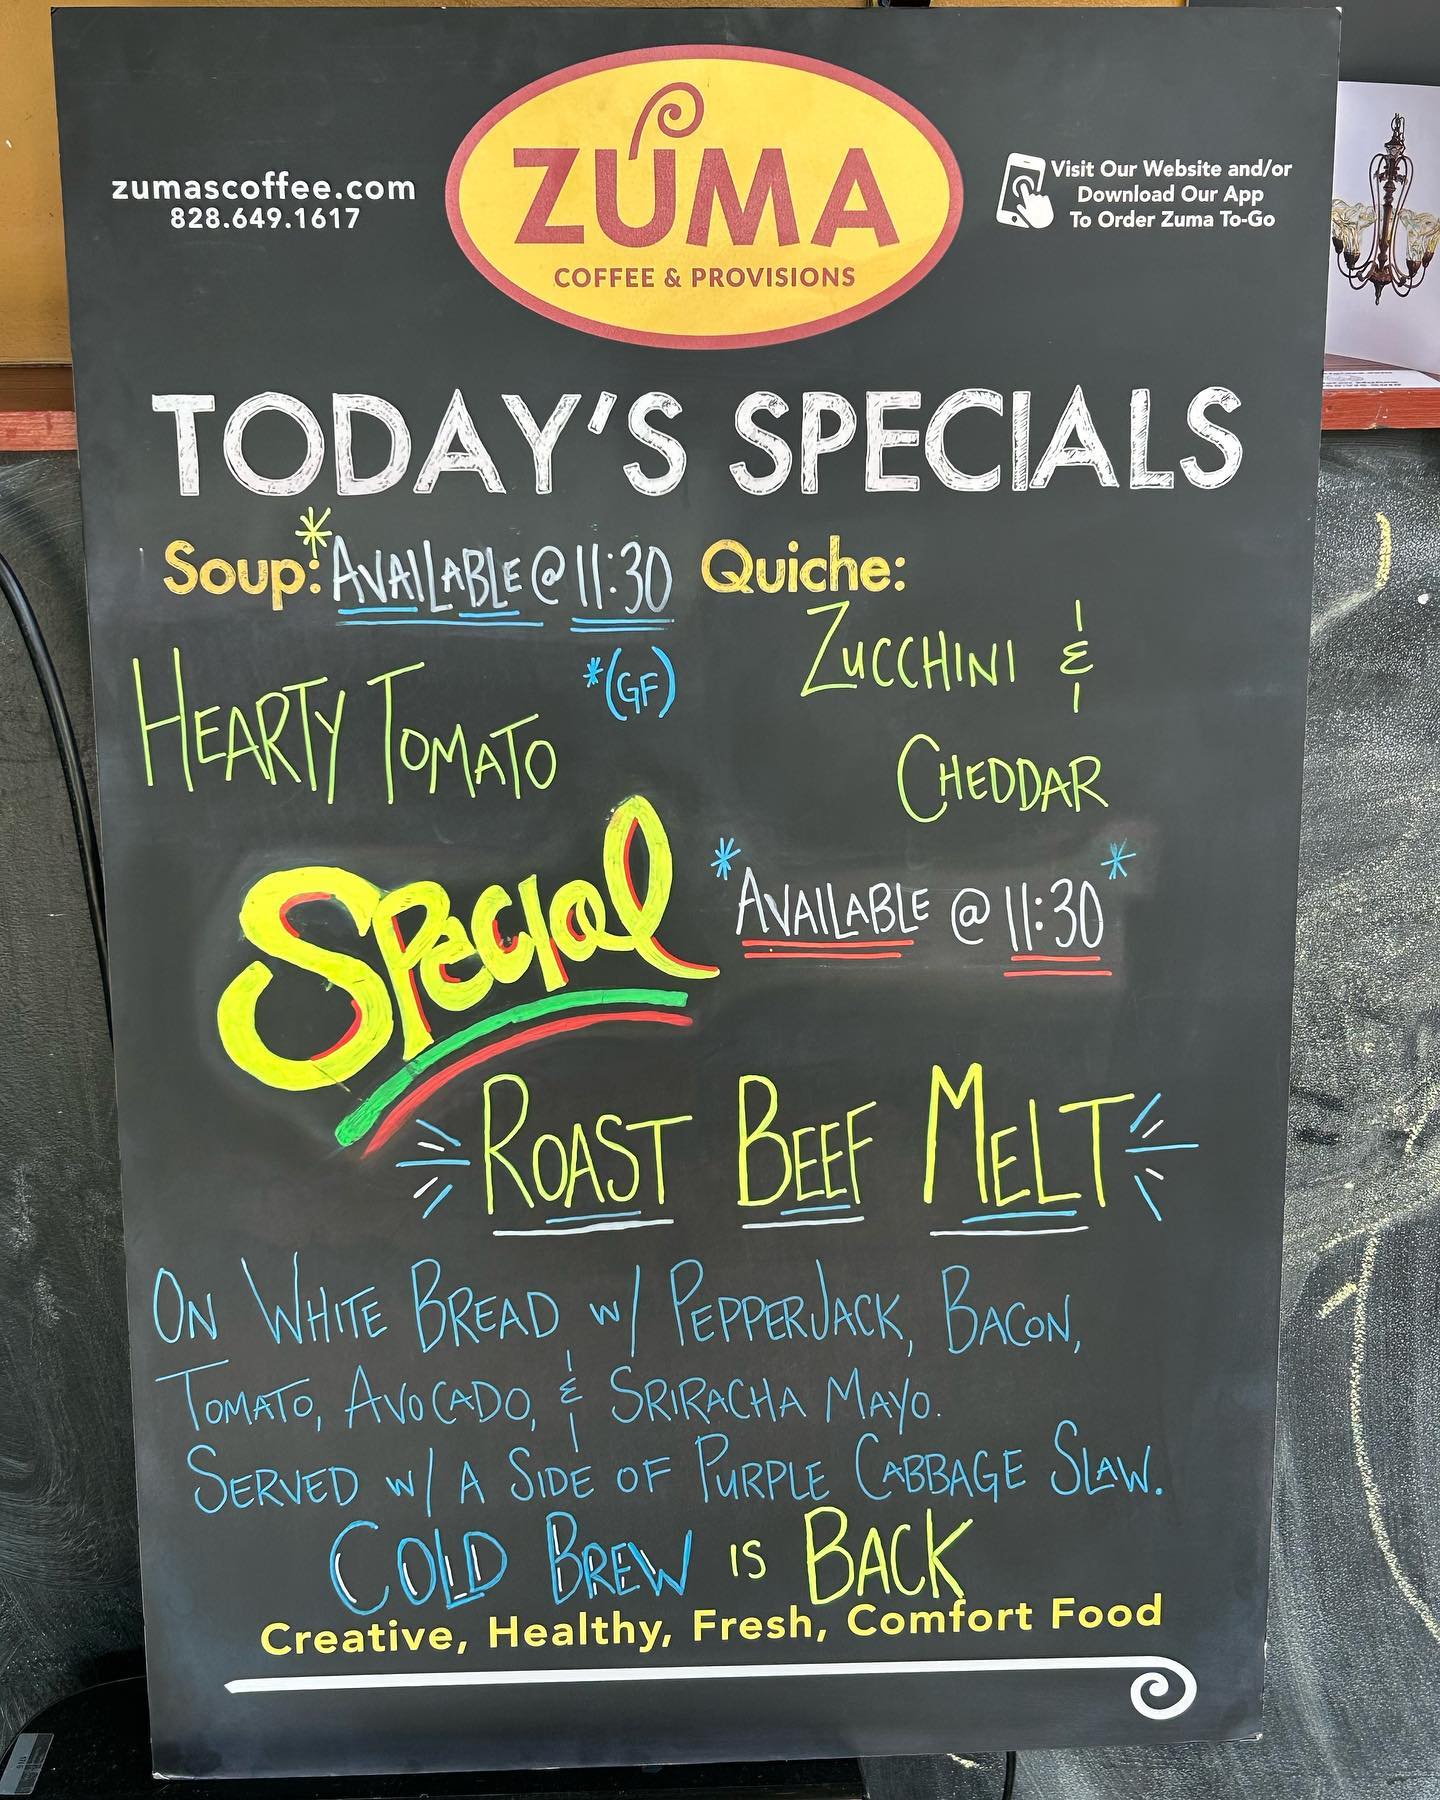 zumascoffee.com
828.649.1617
ZUMA
COFFEE & PROVISIONS
Visit Our Website and/or
Download Our App
To Order Zuma To-Go
TODAY'S SPECIALS
Soup:* AVAILABLE @ 11:30
*(GF)
HEARTY TOMATO
Quiche:
ZUCCHINI &
CHEDDAR
SPECIAL
*AVAILABLE @ 11:30*
ROAST BEEF MELT
ON WHITE BREAD W/ PEPPERJACK, BACON,
TOMATO, AVOCADO, & SRIRACHA MAYO.
SERVED W/ A SIDE OF PURPLE CABBAGE SLAW.
COLD BREW IS BACK
Creative, Healthy, Fresh, Comfort Food